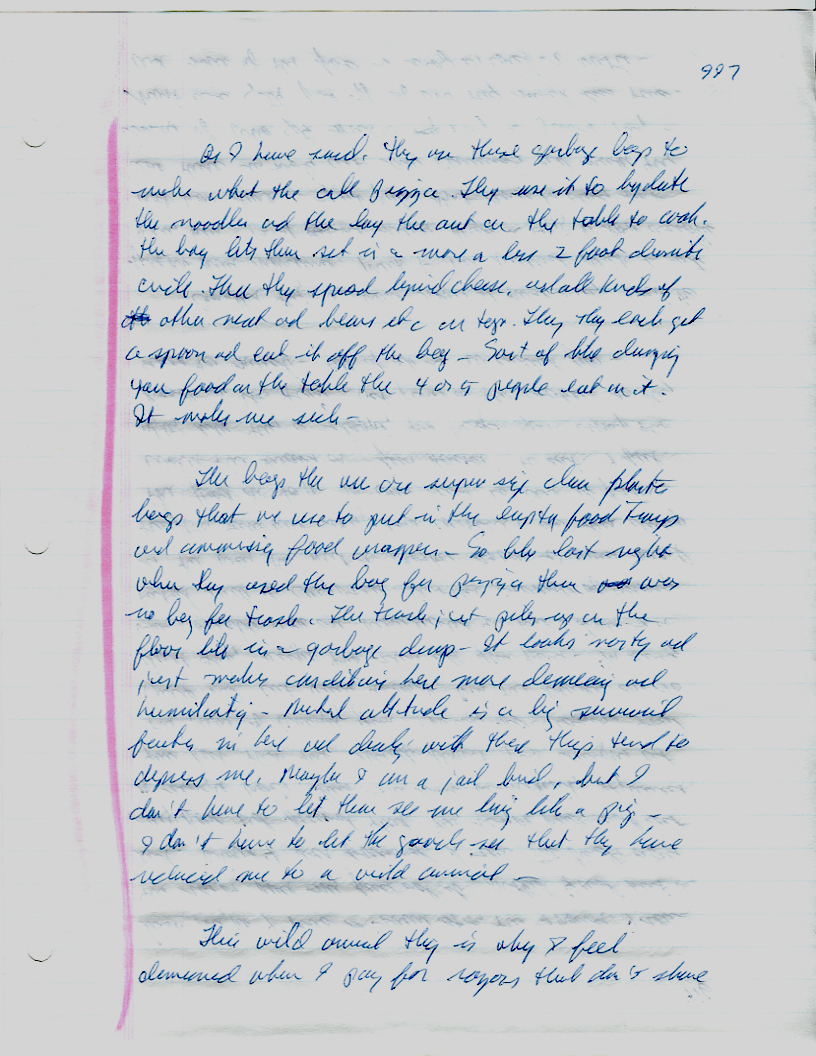 997
As I have said. They use these garbage bags to
make what the call pizza. They use it to hydrate
the noodles ad the lay the out on the table to cook.
the bag lets them set in a more a less 2 foot
circle. Then they spread liquid cheese, all kinds of
other meat ad beans etc on top. They they each get
a spoon ad eat it off the bag – Sort of like dumping
your food on the table the 4 or 5 people eat on it.
It makes me sick –
The bags the use are super size clear plastic
bags that we use to put in the empty food Trays
and commissary food wrappers – So like last night
when they used the bag for pizza then was
no bag for trash. The trash just piles up on the
floor like in a garbage dump – It looks nasty ad
just makes conditions here more demeaning ad
humiliating – Mental attitude is a big survival
factor in here ad dealing with these things tend to
depress me. Maybe I am a jail bird, but I
don't have to let them see me living like a pig –
I don't have to let the guards see that they have
reduced me to a wild animal –
This wild animal thing is why I feel
demeaned when I pay for razors that don't shave